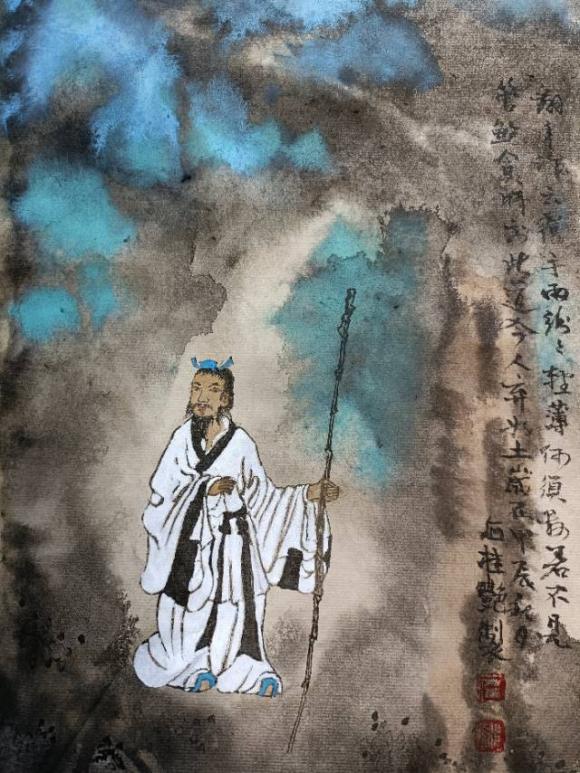 翻手作云覆手雨紛々輕薄何須数君不見
管鮑貧時交此道今人弃如土歲在甲辰秋月
石桂艷製